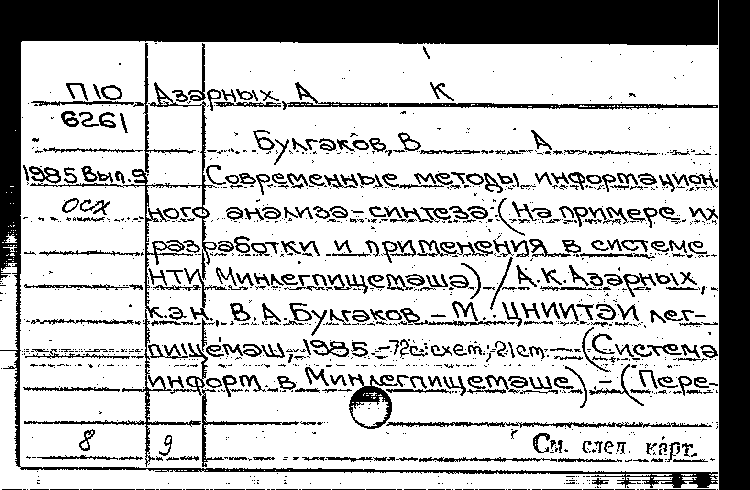 П10 Азарных, А К
6261
Булгаков, В А
1985 Вып.9 Современные методы информацион-
осх ного анализа-синтеза (На примере их
разработки и применения в системе
НТИ Минлегпищемаша) / А.К. Азарных,
к.э.н., В.А. Булгаков. – М.: ЦНИИТЭИ лег-
пищемаш, 1985. – 72с.: схем.; 21см – (Система
информ. в Минлегпищемаше). – (Пере-
8 9 См. след. карт.